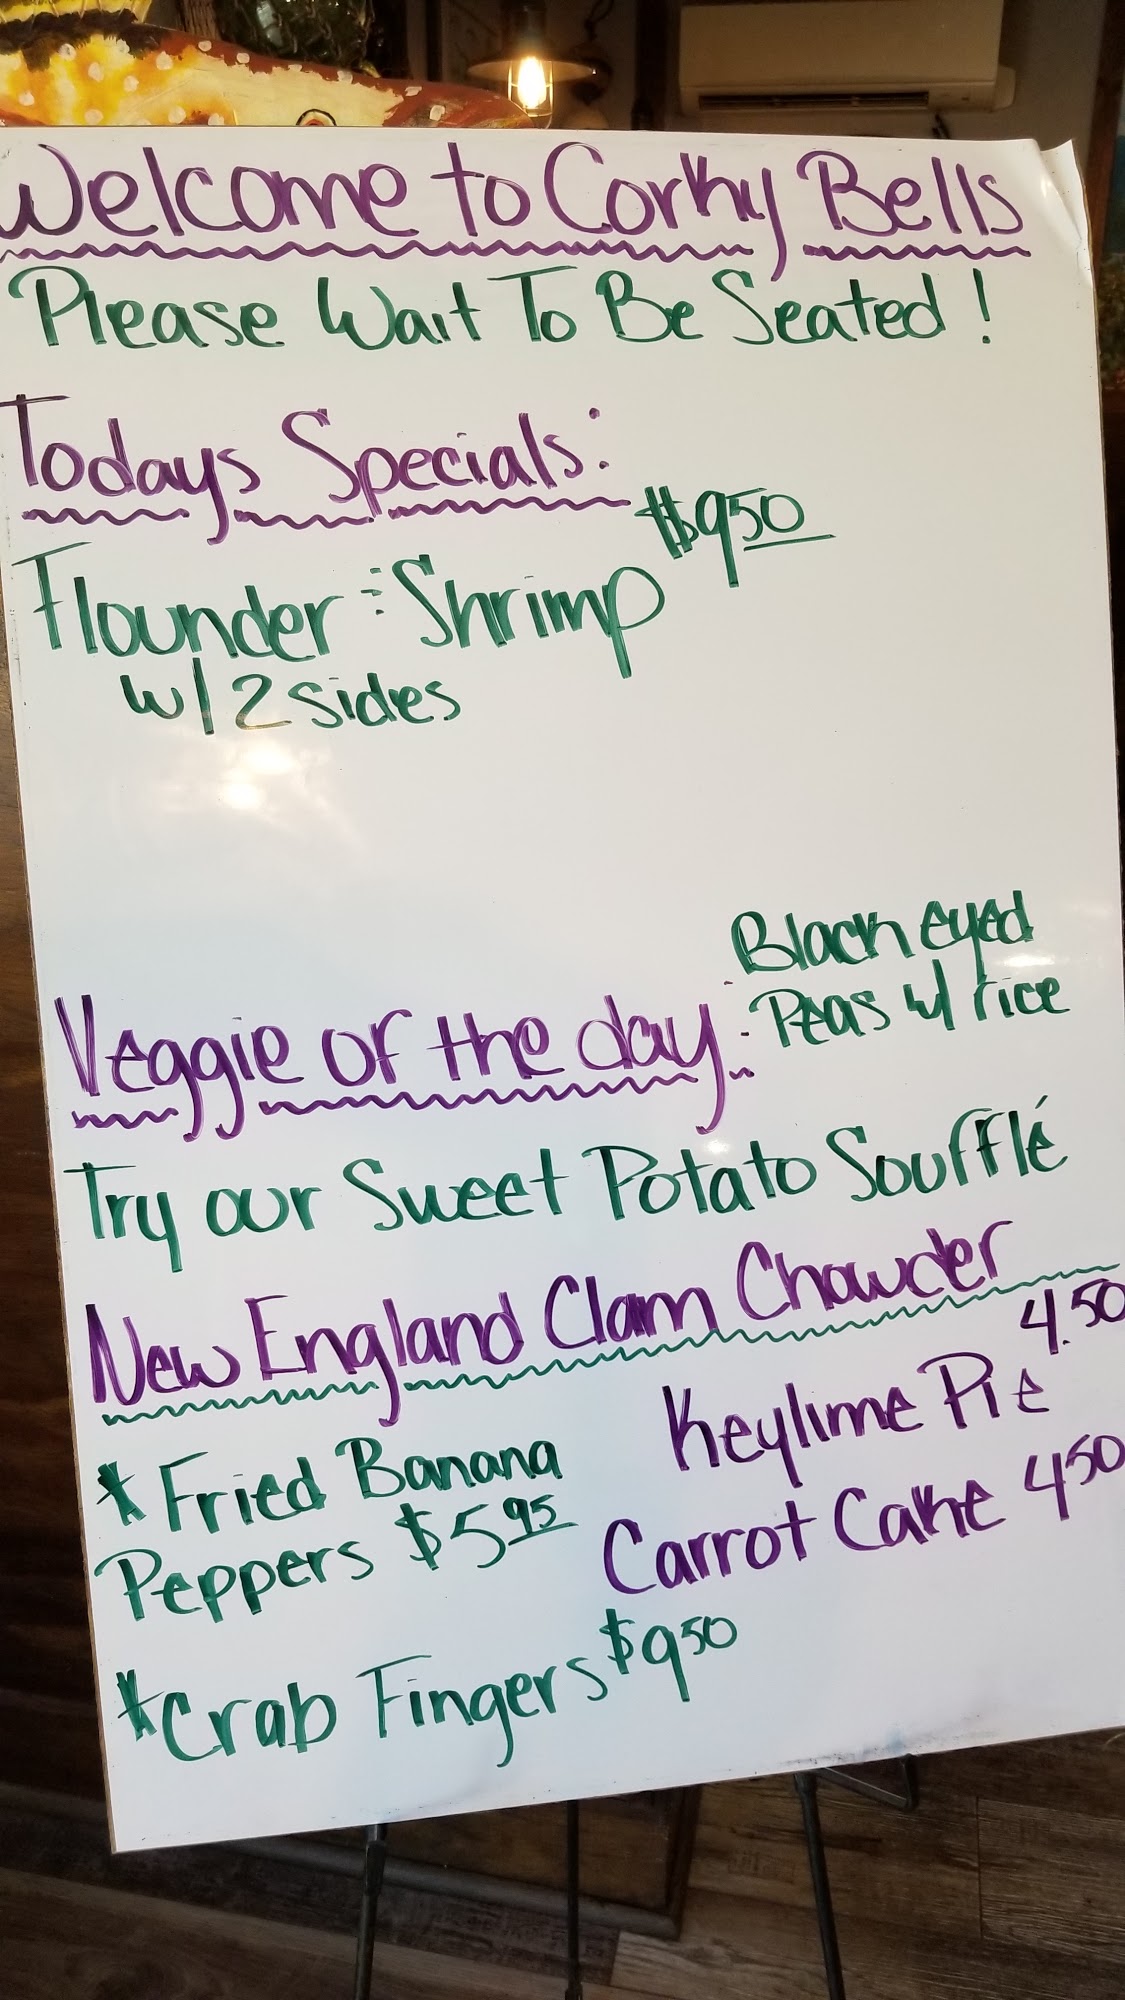 Welcome to Corky Bells
Please Wait To Be Seated!
Todays Specials:
Flounder : Shrimp $9.50
w/2 sides
Veggie of the day: Black eyed
Peas w/ rice
Try our Sweet Potato Soufflé
New England Clam Chowder
*Fried Banana
Peppers $5.95
Keylime Pie 4.50
Carrot Cake 4.50
*Crab Fingers $9.50